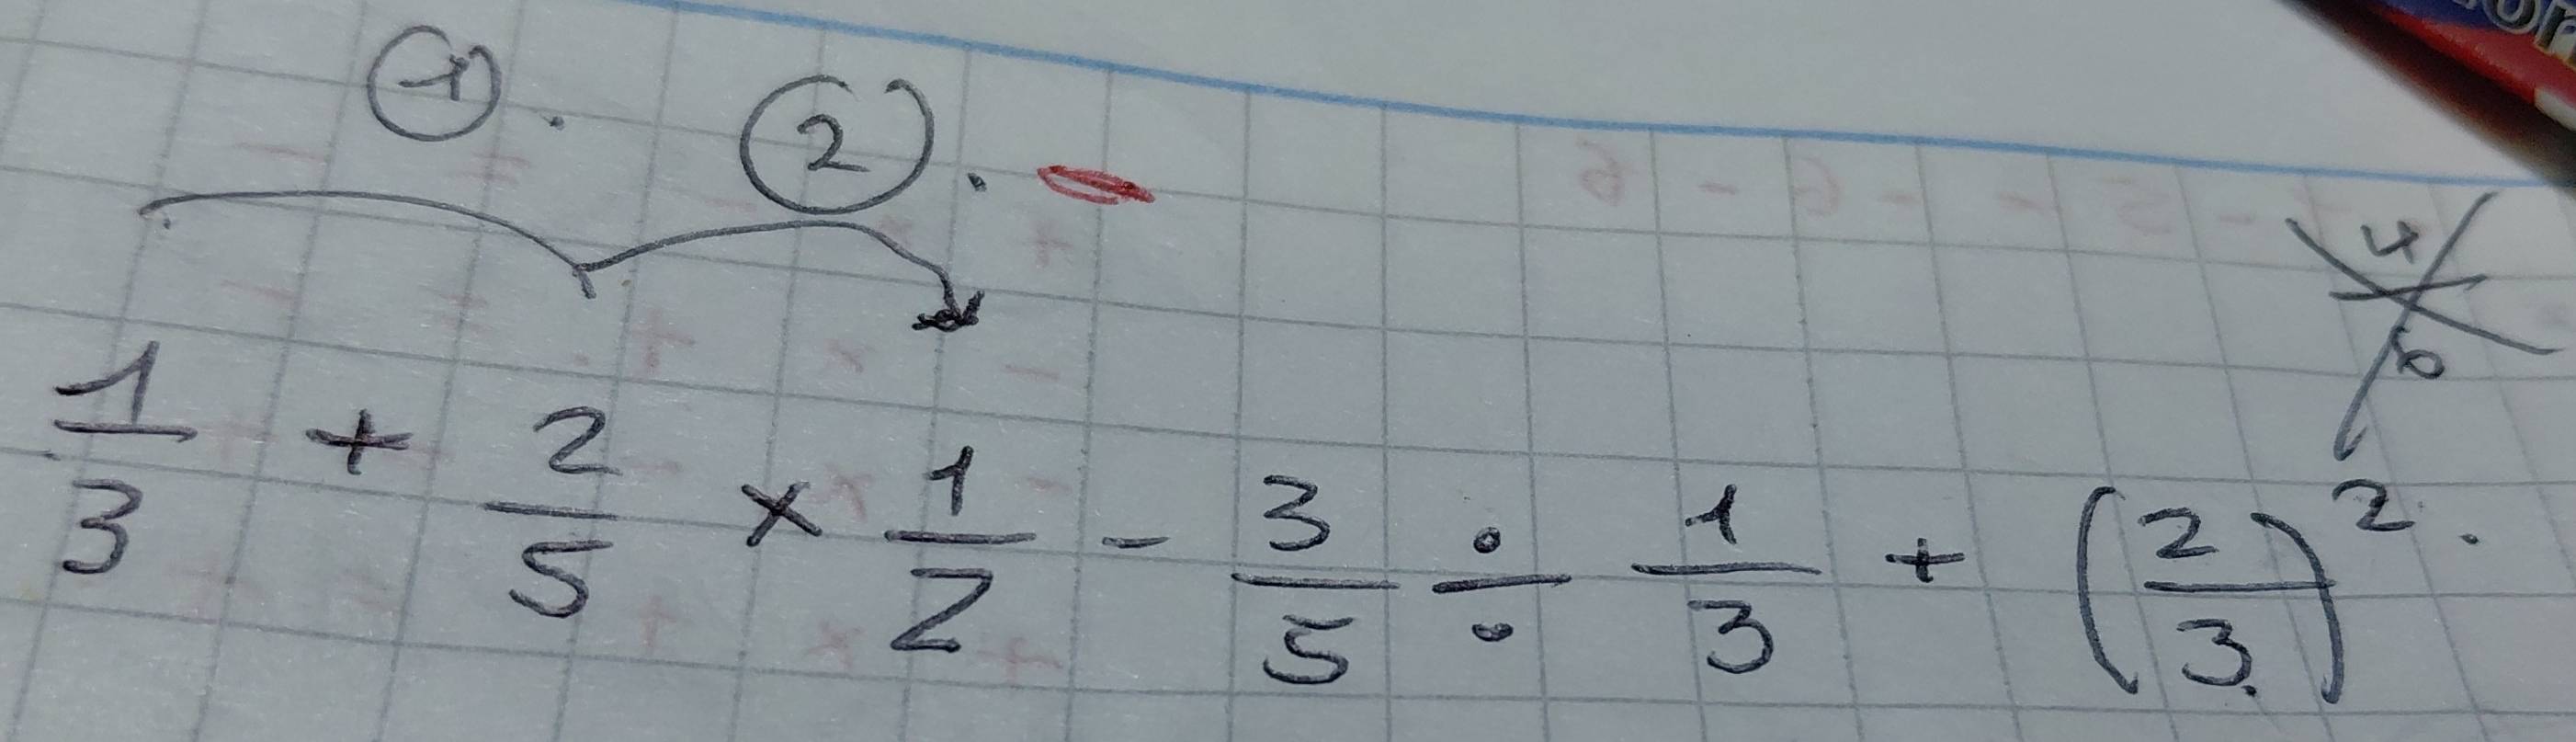 ① . ② .
1/3 + 2/5 × 1/2 - 3/5 ÷ 1/3 + (2/3)² .